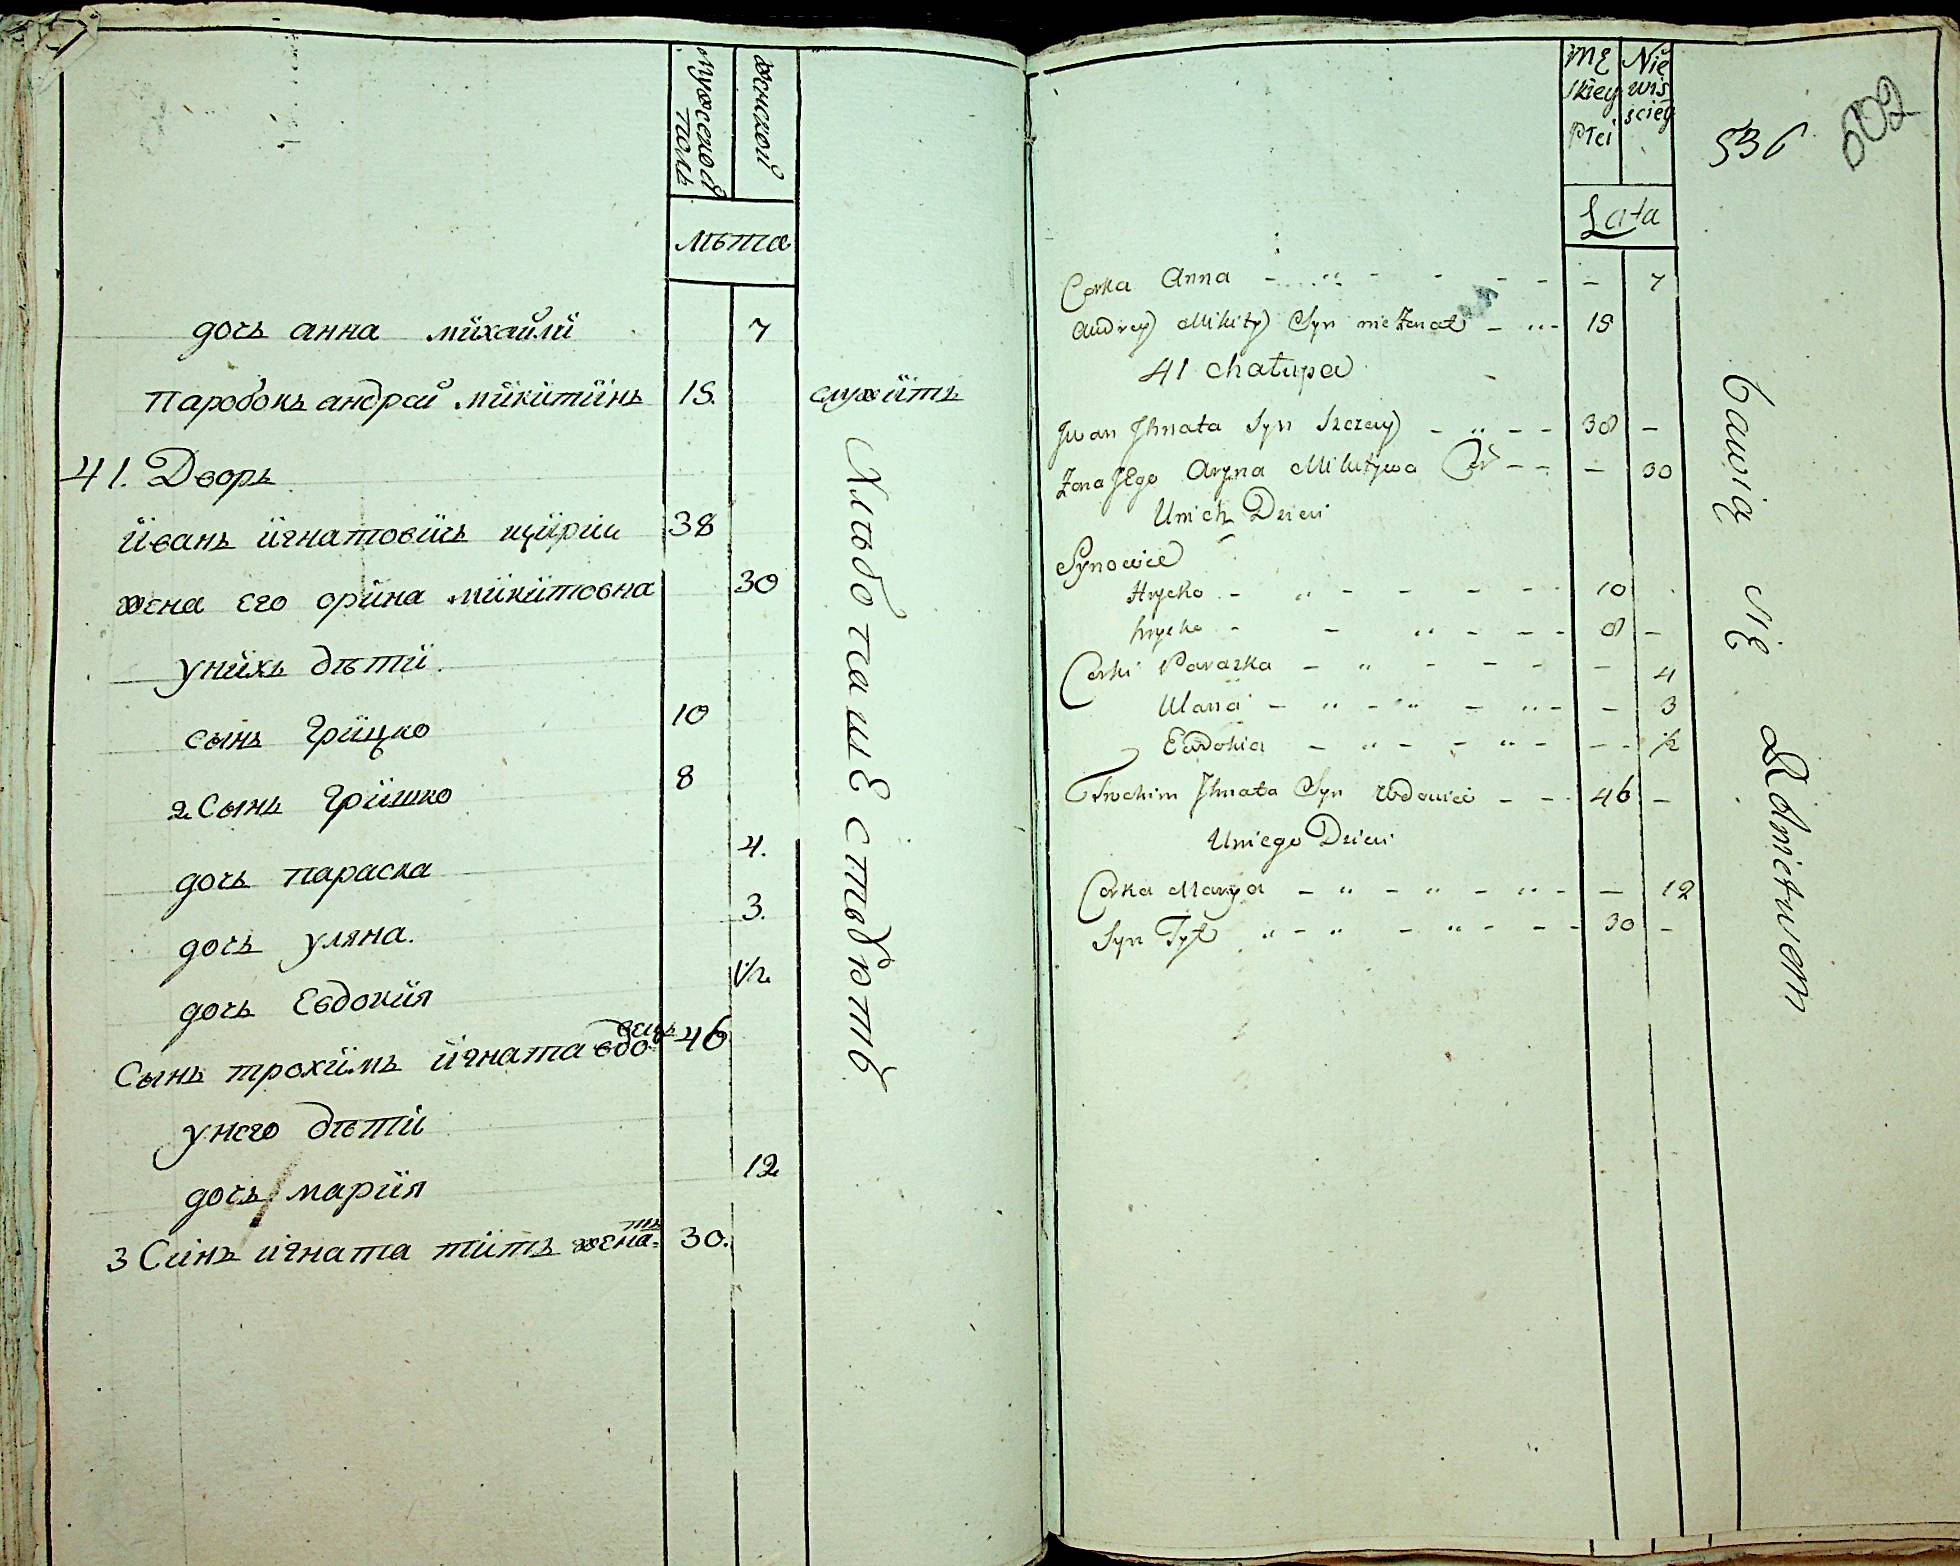 мужеской полъ
женской
лѣта
дочь анна михайли 7
паробокъ андрей микитинъ 15. служитъ
41. Дворъ
иванъ игнатовичь 38
жена его орина микитовна 30
унихъ дѣти.
сынъ грицко 10
2 Сынъ гришко 8
дочь параска 4.
дочь уляна. 3.
дочь Евдокия 1/2
Сынъ трохимъ игната вдовецъ 46
унего дѣти
дочь мария 12
3 Синъ игната титъ женатъ 30.
Хлѣбопашествуютъ
Męskiey Płci
Niewiściey
Lata
536
602
Corka Anna 7
Andrey Mikity Syn nieżenat 15
41 chałupa
Jwan Jhnata Syn Szczery 38
Żona Jego Aryna Mikitywa 30
Unich Dzieci
Synowie
Hrycko 10
hrycko 8
Corki Paraska 4
Ulana 3
Eudokia 1/2
Trochim Jhnata Syn wdowiec 46
Uniego Dzieci
Corka Marya 12
Syn Tyt 30
bawią się Rolnictwem